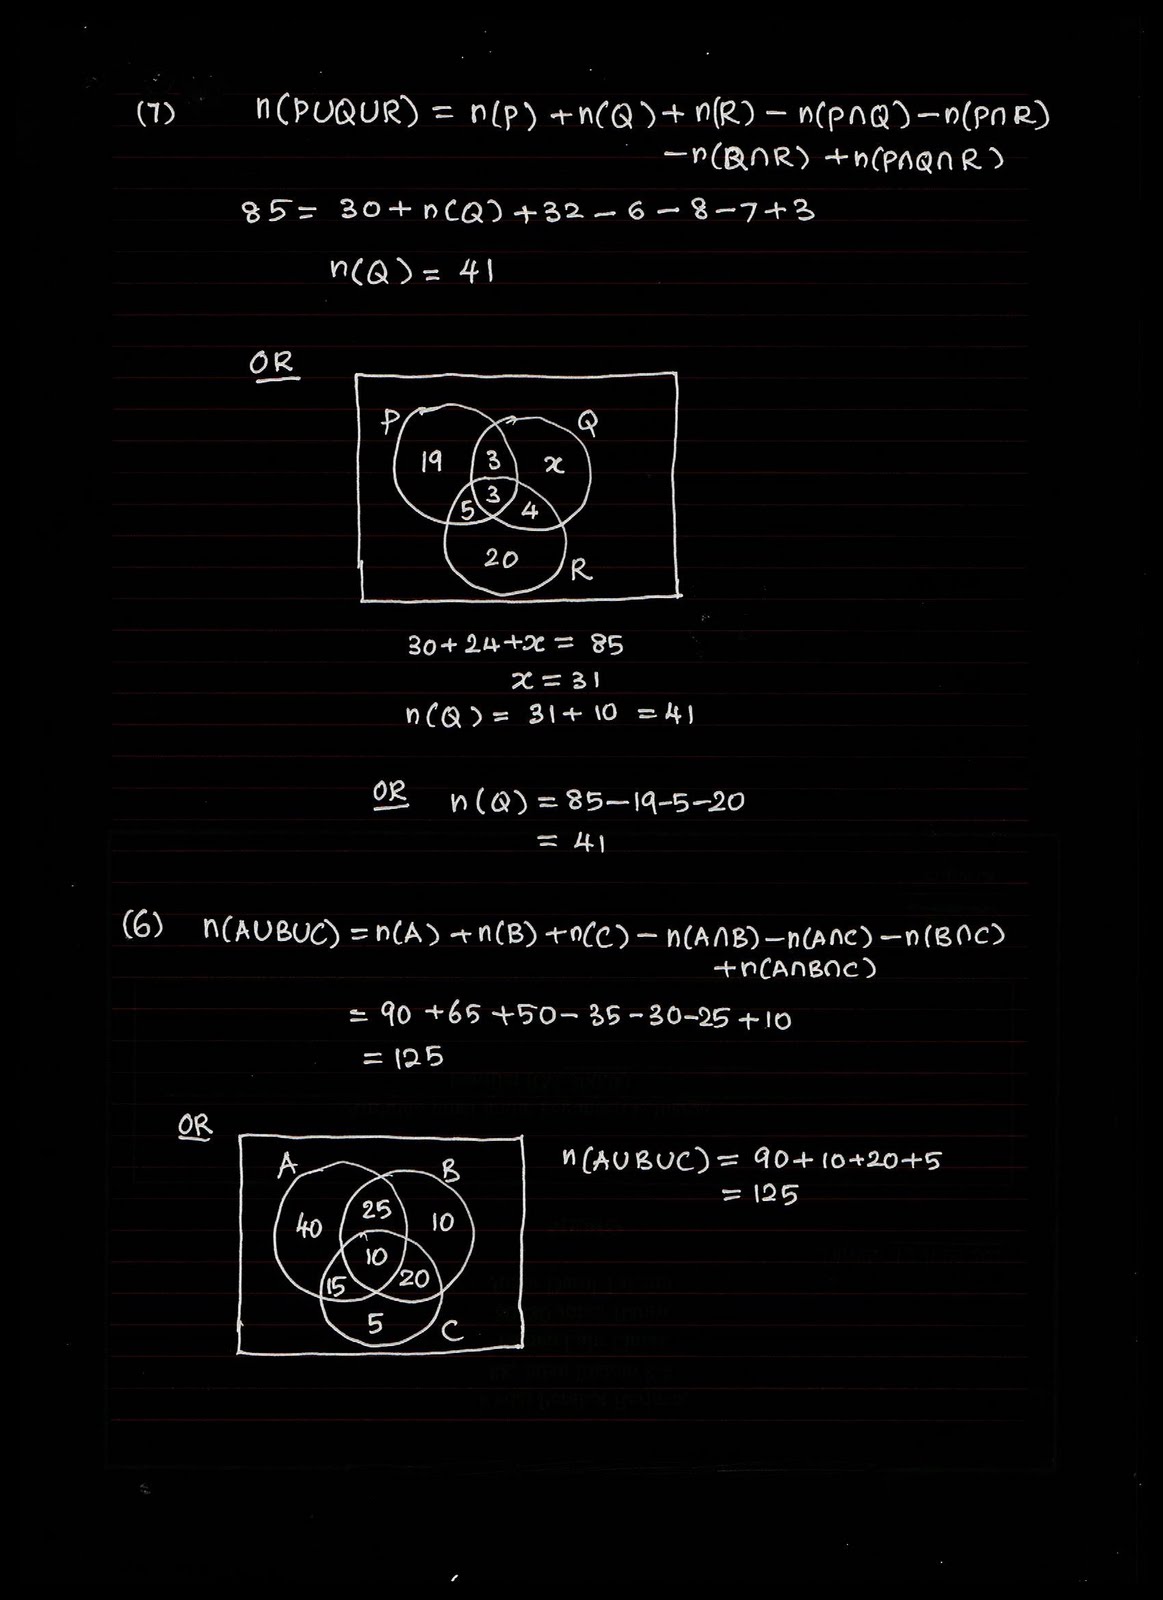 (7) n(PUQUR) = n(P) + n(Q) + n(R) – n(P∩Q) – n(P∩R)
– n(Q∩R) + n(P∩Q∩R)
85 = 30 + n(Q) + 32 – 6 – 8 – 7 + 3
n(Q) = 41
OR
P Q
19 3 x
3
5 4
20
R
30 + 24 + x = 85
x = 31
n(Q) = 31 + 10 = 41
OR n(Q) = 85 – 19 – 5 – 20
= 41
(6) n(AUBUC) = n(A) + n(B) + n(C) – n(A∩B) – n(A∩C) – n(B∩C)
+ n(A∩B∩C)
= 90 + 65 + 50 – 35 – 30 – 25 + 10
= 125
OR
A B
25
40 10
10
15 20
5 C
n(AUBUC) = 90 + 10 + 20 + 5
= 125